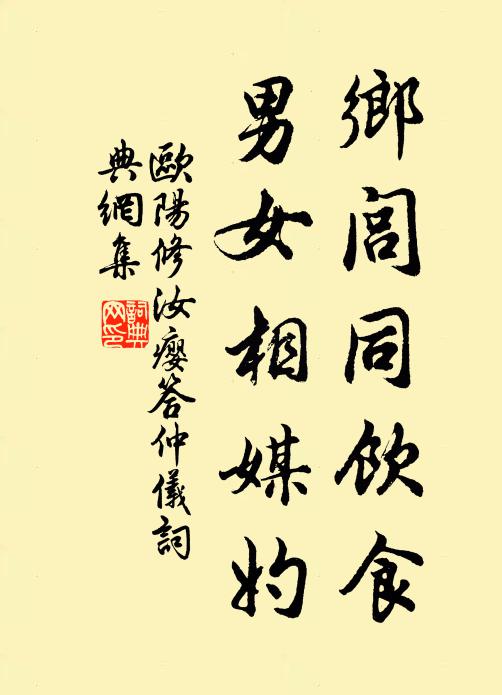 鄉閭同飲食
男女相媒妁
歐陽修汝癭答仲儀詞
典網集
詞典網印